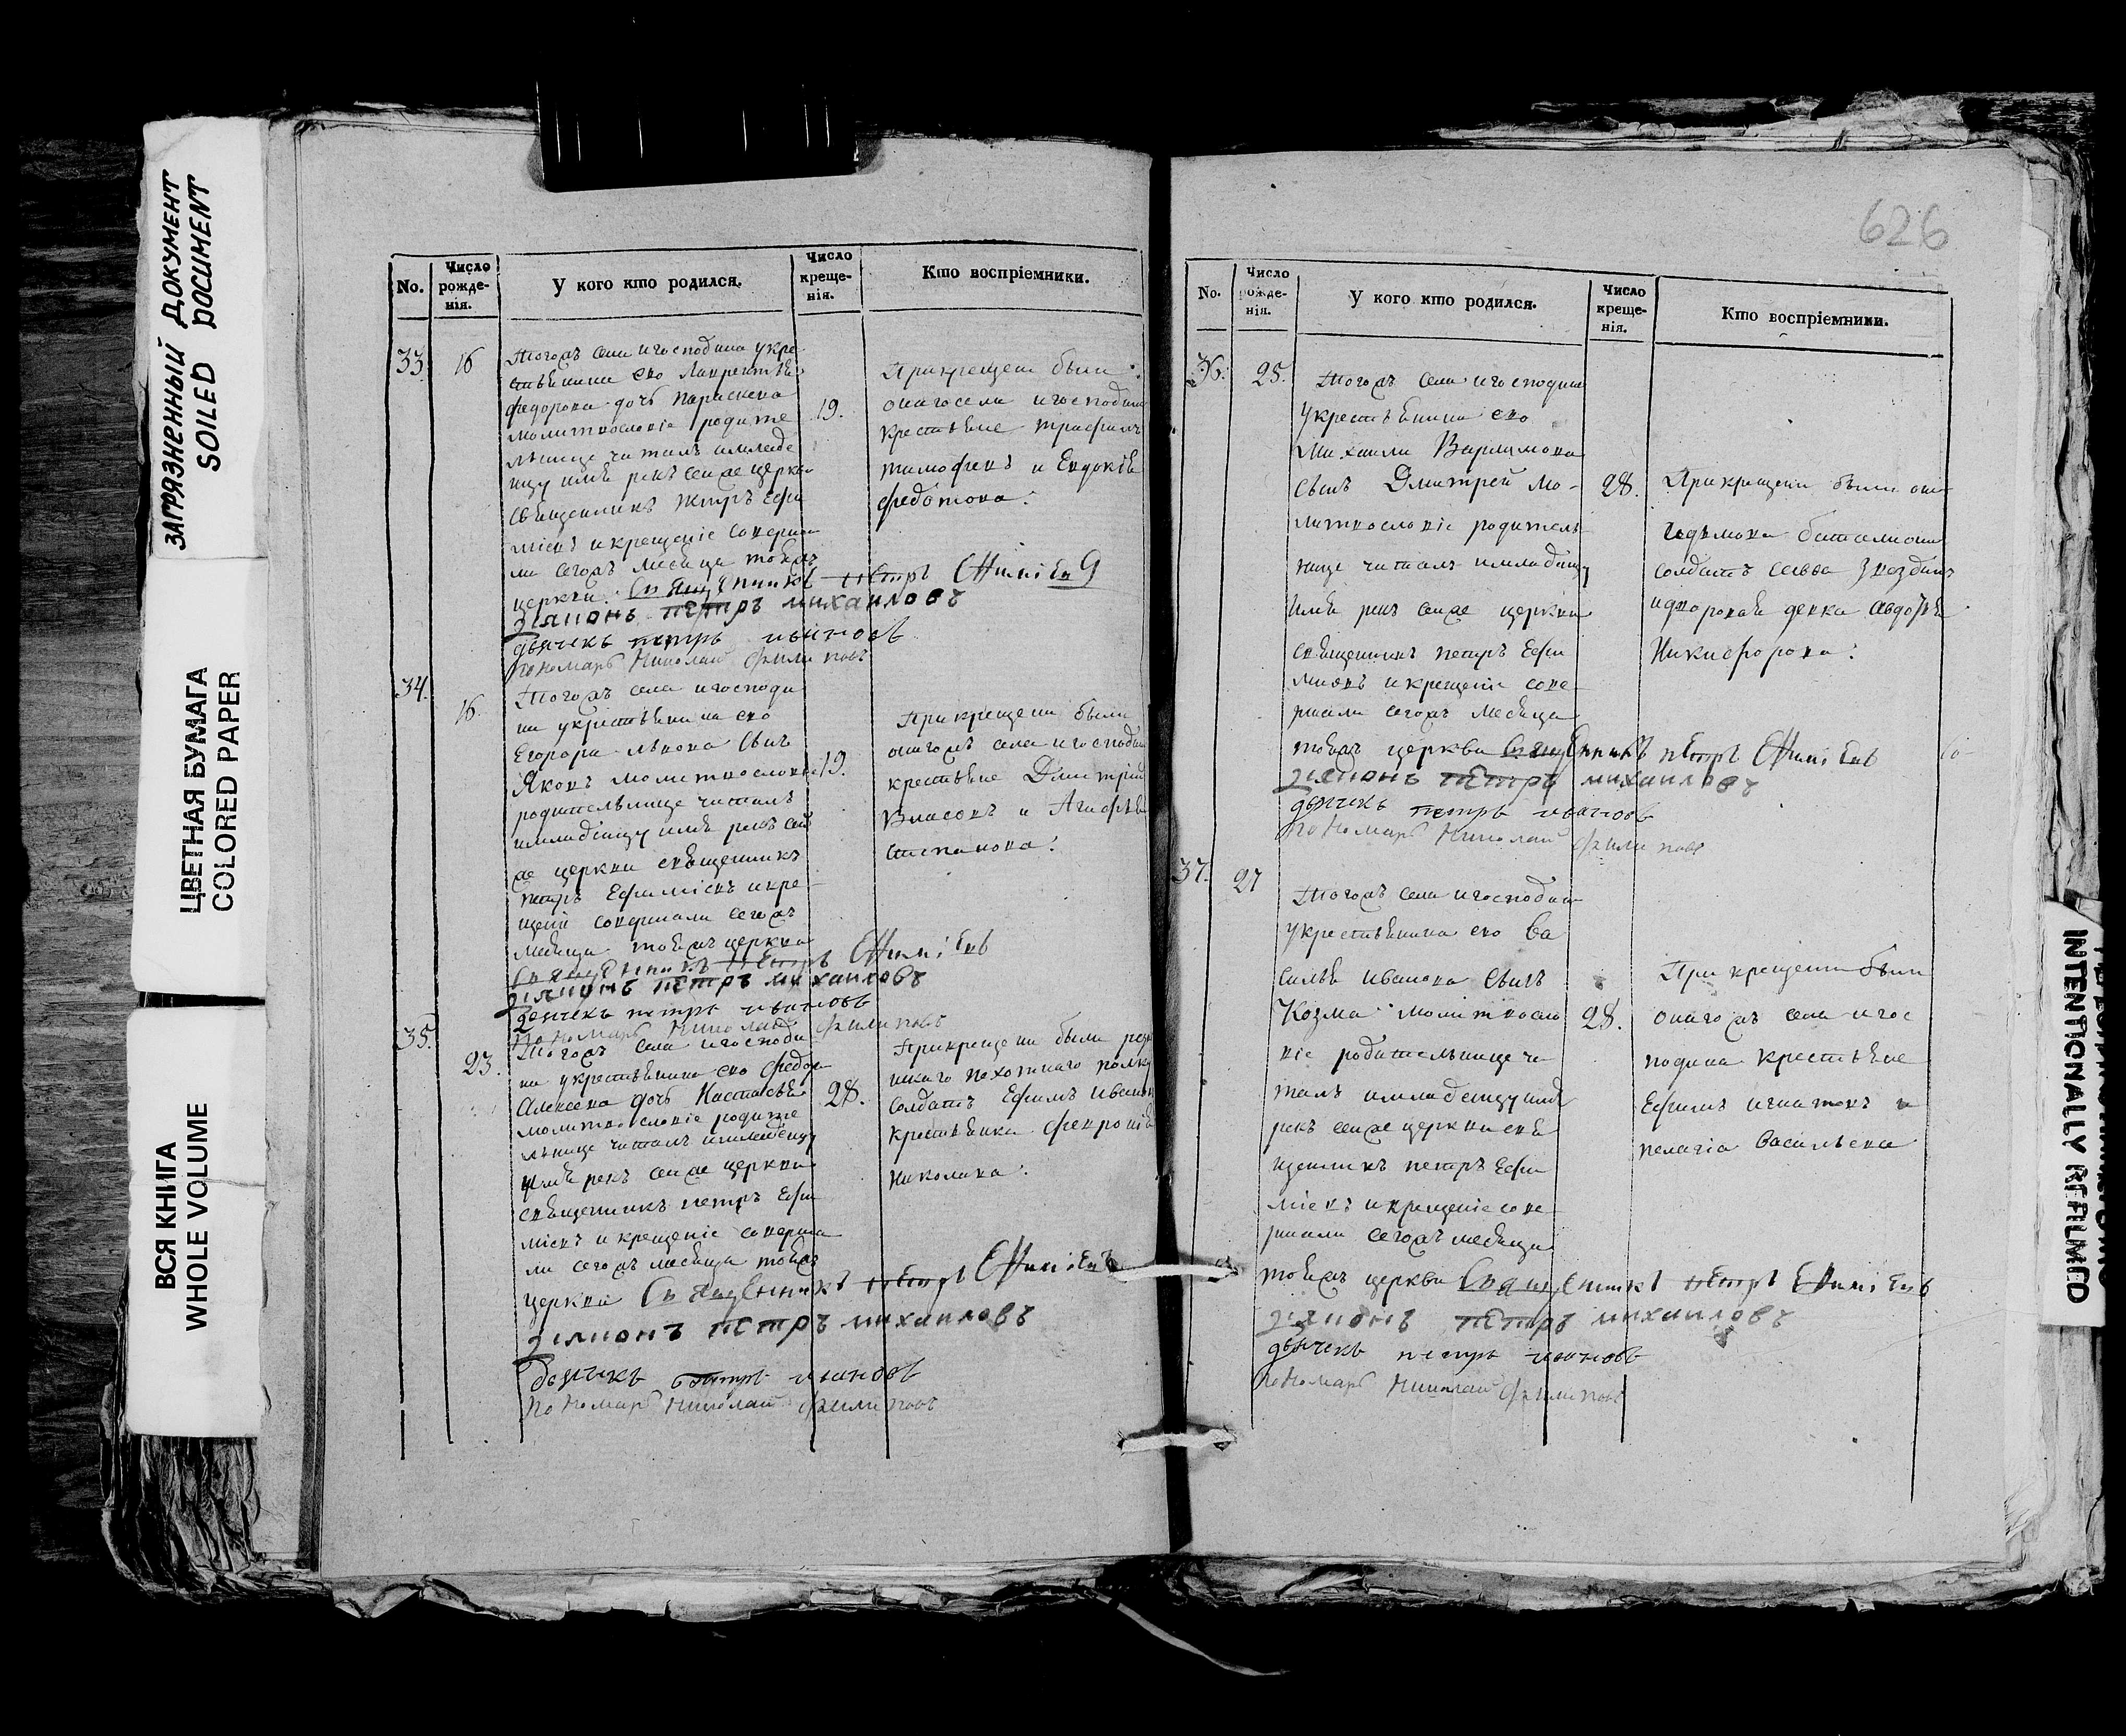 ЗАГРЯЗНЕННЫЙ ДОКУМЕНТ
SOILED DOCUMENT
ЦВЕТНАЯ БУМАГА
COLORED PAPER
ВСЯ КНИГА
WHOLE VOLUME
No. Число рожде-нія. У кого кто родился. Число креще-нія. Кто воспріемники.
33. 16
тогожъ села игосподина укре
стьянина ево Лаврентья
федорова дочь параскева
молитвословіе родите
льнице читалъ имладе
нцу имя рекъ сеи же церкви
священникъ петръ Ефи
міевъ икрещеніе соверша
ли сегожъ месяца тояжъ
церкви. Священникъ петръ Ефиміевъ
діяконъ петръ михаиловъ
дьячекъ петръ ивановъ
пономарь Николай филиповъ
19.
при крещеніи были
онагосела игосподина
крестьяне трофимъ
тимофеевъ и Евдокія
федотова.
34. 16.
тогожъ села игосподи
на укрестьянина ево
Егора сынъ
Яковъ молитвословіе
родительнице читалъ
имладенцу имя рекъ сей
же церкви священникъ
петръ Ефиміевъ икре
щеніе совершали сегожъ
месяца тояжъ церкви
Священникъ Петръ Ефиміевъ
діяконъ петръ михаиловъ
дьячекъ петръ ивановъ
пономарь Николай филиповъ
19.
при крещеніи были
онагожъ села игосподина
крестьяне Дмитрій
Власовъ и Агафья
степанова.
35. 23.
тогожъ села игосподи
на укрестьянина ево федора
Алексеева дочь Настасья
молитвословіе родите
льнице читалъ имладенцу
имя рекъ сеи же церкви
священникъ петръ Ефи
міевъ и крещеніе соверша
ли сегожъ месяца тояжъ
церкви Священникъ петръ Ефиміевъ
діяконъ петръ михаиловъ
дьячекъ петръ ивановъ
пономарь Николай филиповъ
28.
при крещеніи были
пехотнаго полку
солдатъ Ефимъ Ивановъ
крестьянка феврония
Николаева.
626
No. Число рожде-нія. У кого кто родился. Число креще-нія. Кто воспріемники.
36. 25.
тогожъ села игосподина
укрестьянина ево
Михаила Варламова
сынъ Дмитрей мо-
литвословіе родитель
нице читалъ имладенцу
имя рекъ сеи же церкви
священникъ петръ Ефи
міевъ икрещеніе сове
ршали сегожъ месяца
тояжъ церкви Священникъ петръ Ефиміевъ
діяконъ петръ михаиловъ
дьячекъ петръ ивановъ
пономарь Николай филиповъ
28.
При крещеніи были
баталиона
солдатъ
девка Авдотья
Никифорова.
37. 27
тогожъ села игосподина
укрестьянина ево Ва
силья иванова сынъ
Козма молитвосло
віе родительнице чи
талъ имладенцу имя
рекъ сеи же церкви свя
щенникъ петръ Ефи
міевъ икрещеніе сове
ршали сегожъ месяца
тояжъ церкви Священникъ петръ Ефиміевъ
діяконъ петръ михаиловъ
дьячекъ петръ ивановъ
пономарь Николай филиповъ
28.
При крещеніи были
онагожъ села игос
подина крестьяне
Ефимъ игнатовъ и
пелагія Васильева
INTENTIONALLY REFILMED